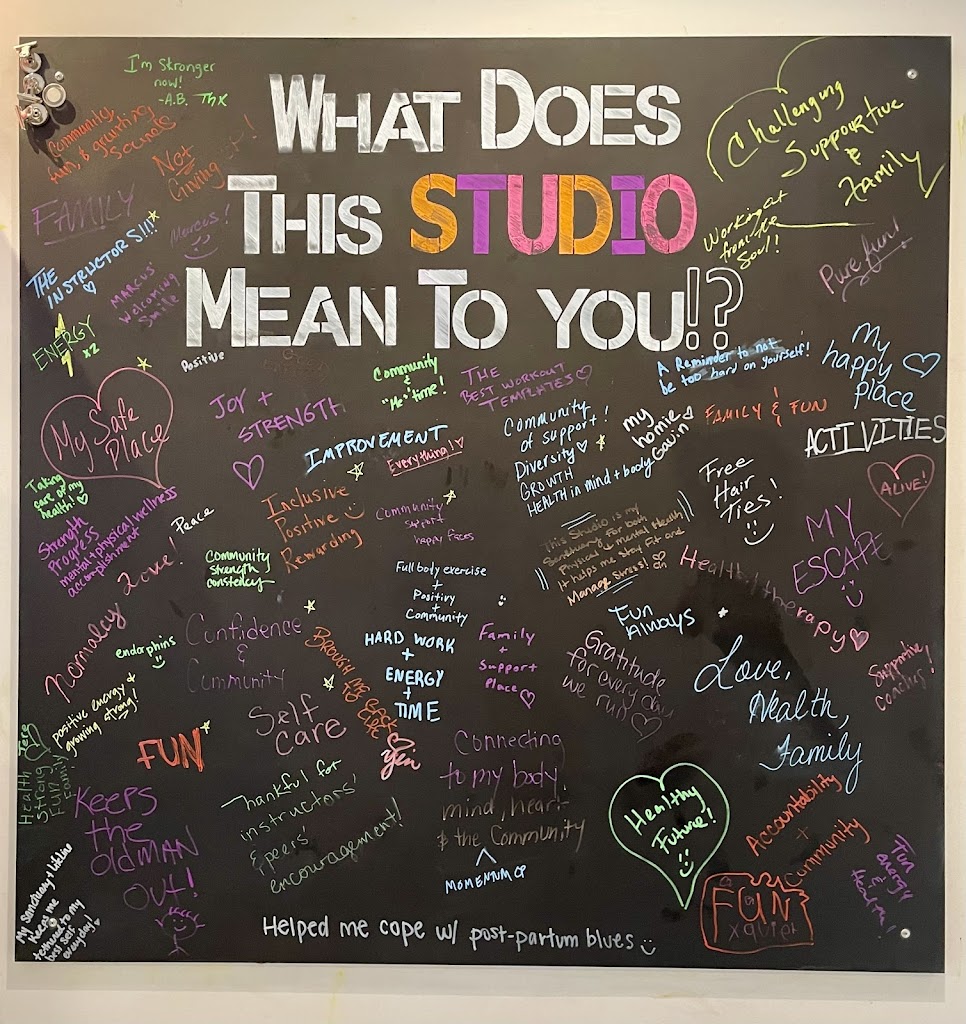 WHAT DOES
THIS STUDIO
MEAN TO YOU!?
I'm Stronger
now!
-A.B. Thx
Community,
fun, & grunting
sounds
Not
Giving
!
Challenging
Supportive
&
Family
FAMILY
Marcos!
THE
INSTRUCTORS!!!
MARCUS'
Welcoming
Smile
Working at
from the
Soul!
Pure fun!
ENERGY
x2
Positive
My Safe
Place
JOY +
STRENGTH
Community
&
"Me" time!
THE
BEST WORKOUT
TEMPLATES
A Reminder to not
be too hard on yourself!
My
happy
place
IMPROVEMENT
Everything!
Community
of support!
Diversity
GROWTH
HEALTH in mind + body
my
homie
Gavin
FAMILY & FUN
ACTIVITIES
ALIVE!
Taking
care of my
health!
Strength
Progress
mental + physical wellness
accomplishment
Peace
Love!
Inclusive
Positive
Rewarding
Community
Support
happy faces
Free
Hair
Ties!
MY
ESCAPE
Community
Strength
consistency
Full body exercise
+
Positivy
+
Community
This Studio is my
Sanctuary for both
Physical & mental Health
It helps me stay Fit and
Manage Stress!
Health therapy
Normalcy
endorphins
Confidence
&
Community
BROUGHT ME
BACK
HARD WORK
+
ENERGY
+
TIME
Family
+
Support
Place
Fun
Always
Gratitude
for every day
we run
Love,
Health,
Family
Supportive
Coaches!
positive energy &
growing strong!
Self
care
FUN
Health
Strong
Fun
Family
Keeps
the
oldMAN
OUT!
Thankful for
instructors'
& peers'
encouragement!
Connecting
to my body,
mind, heart
& the Community
MOMENTUM
Healthy
Future!
Accountability
+
Community
FUN
Fun
energy
&
Health!
My Sanctuary & lifeline
Keeps me
tethered to my
best self
everyday!
Helped me cope w/ post-partum blues